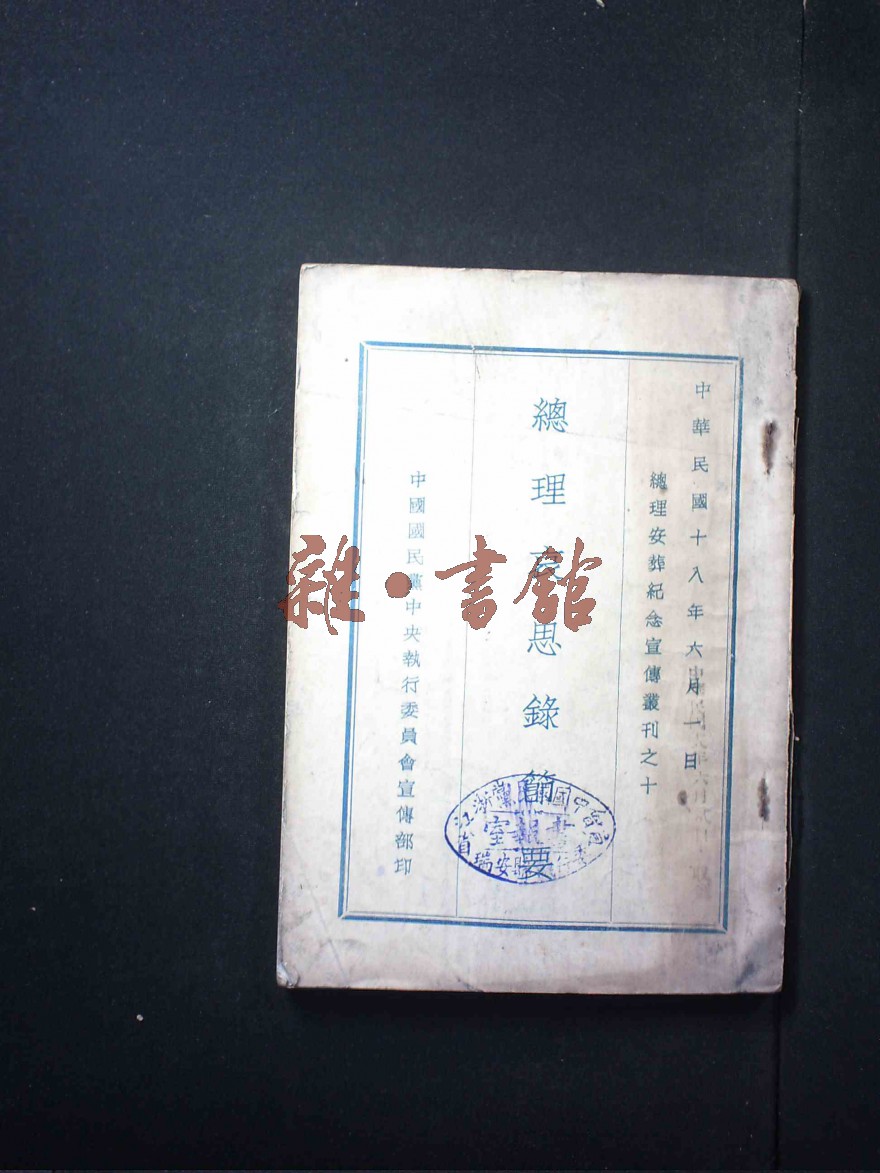 中華民國十八年六月一日
總理安葬紀念宣傳叢刊之十
總理哀思錄簡要
中國國民黨中央執行委員會宣傳部印
雜·書館
書報室